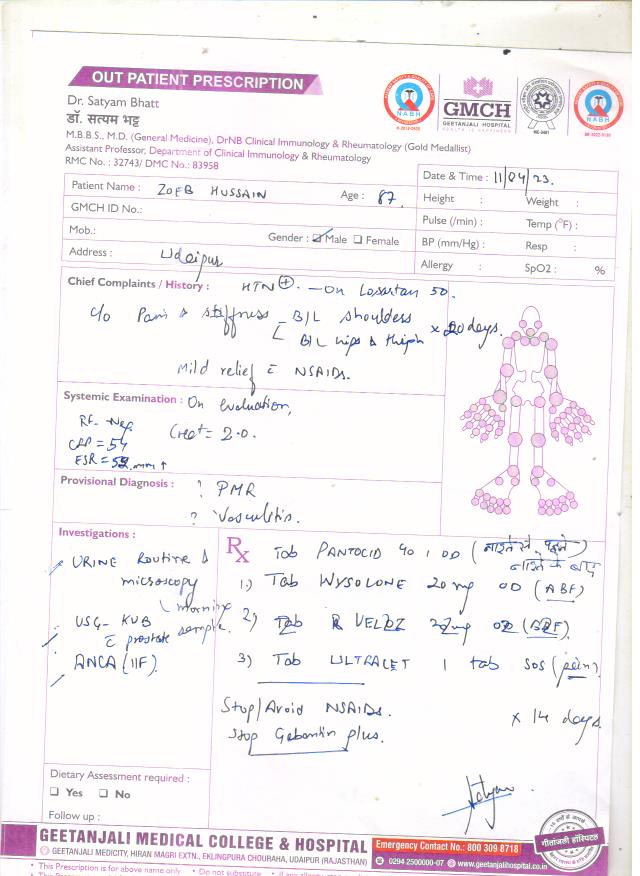 OUT PATIENT PRESCRIPTION
Dr. Satyam Bhatt
डॉ. सत्यम भट्ट
M.B.B.S., M.D. (General Medicine), DrNB Clinical Immunology & Rheumatology (Gold Medallist)
Assistant Professor, Department of Clinical Immunology & Rheumatology
RMC No. : 32743/ DMC No.: 83958
NABH
GMCH
GEETANJALI HOSPITAL
NABH
Date & Time : 11/04/23.
Patient Name : ZOEB HUSSAIN Age : 87
Height : Weight :
GMCH ID No.:
Pulse (/min) : Temp (°F) :
Mob.: Gender : ☑ Male ☐ Female
BP (mm/Hg) : Resp :
Address : Udaipur
Allergy : SpO2 : %
Chief Complaints / History : HTN ⊕ - On Losartan 50.
c/o Pain & stiffness - B/L shoulders
B/L hips & thigh x 20 days.
Mild relief c NSAIDs.
Systemic Examination : On evaluation,
RF- Neg
Creat = 2.0.
CRP = 54
ESR = 52 mm ↑
Provisional Diagnosis : ? PMR
? Vasculitis.
Investigations :
URINE Routine &
microscopy
morning
sample
USG- KUB
c prostate
ANCA (IIF)
Rx Tab PANTOCID 40 1 OD
1.) Tab WYSOLONE 20 mg OD (ABF)
2) Tab VELOZ 20 mg OD (BBF)
3) Tab ULTRACET 1 tab SOS (pain)
Stop/Avoid NSAIDs. x 14 days.
Stop Gabantin plus.
Dietary Assessment required :
☐ Yes ☐ No
Follow up :
GEETANJALI MEDICAL COLLEGE & HOSPITAL
GEETANJALI MEDICITY, HIRAN MAGRI EXTN., EKLINGPURA CHOURAHA, UDAIPUR (RAJASTHAN)
Emergency Contact No.: 800 309 8718
0294 2500000-07 www.geetanjalihospital.co.in
गीतांजली हॉस्पिटल
• This Prescription is for above name only • Do not substitute